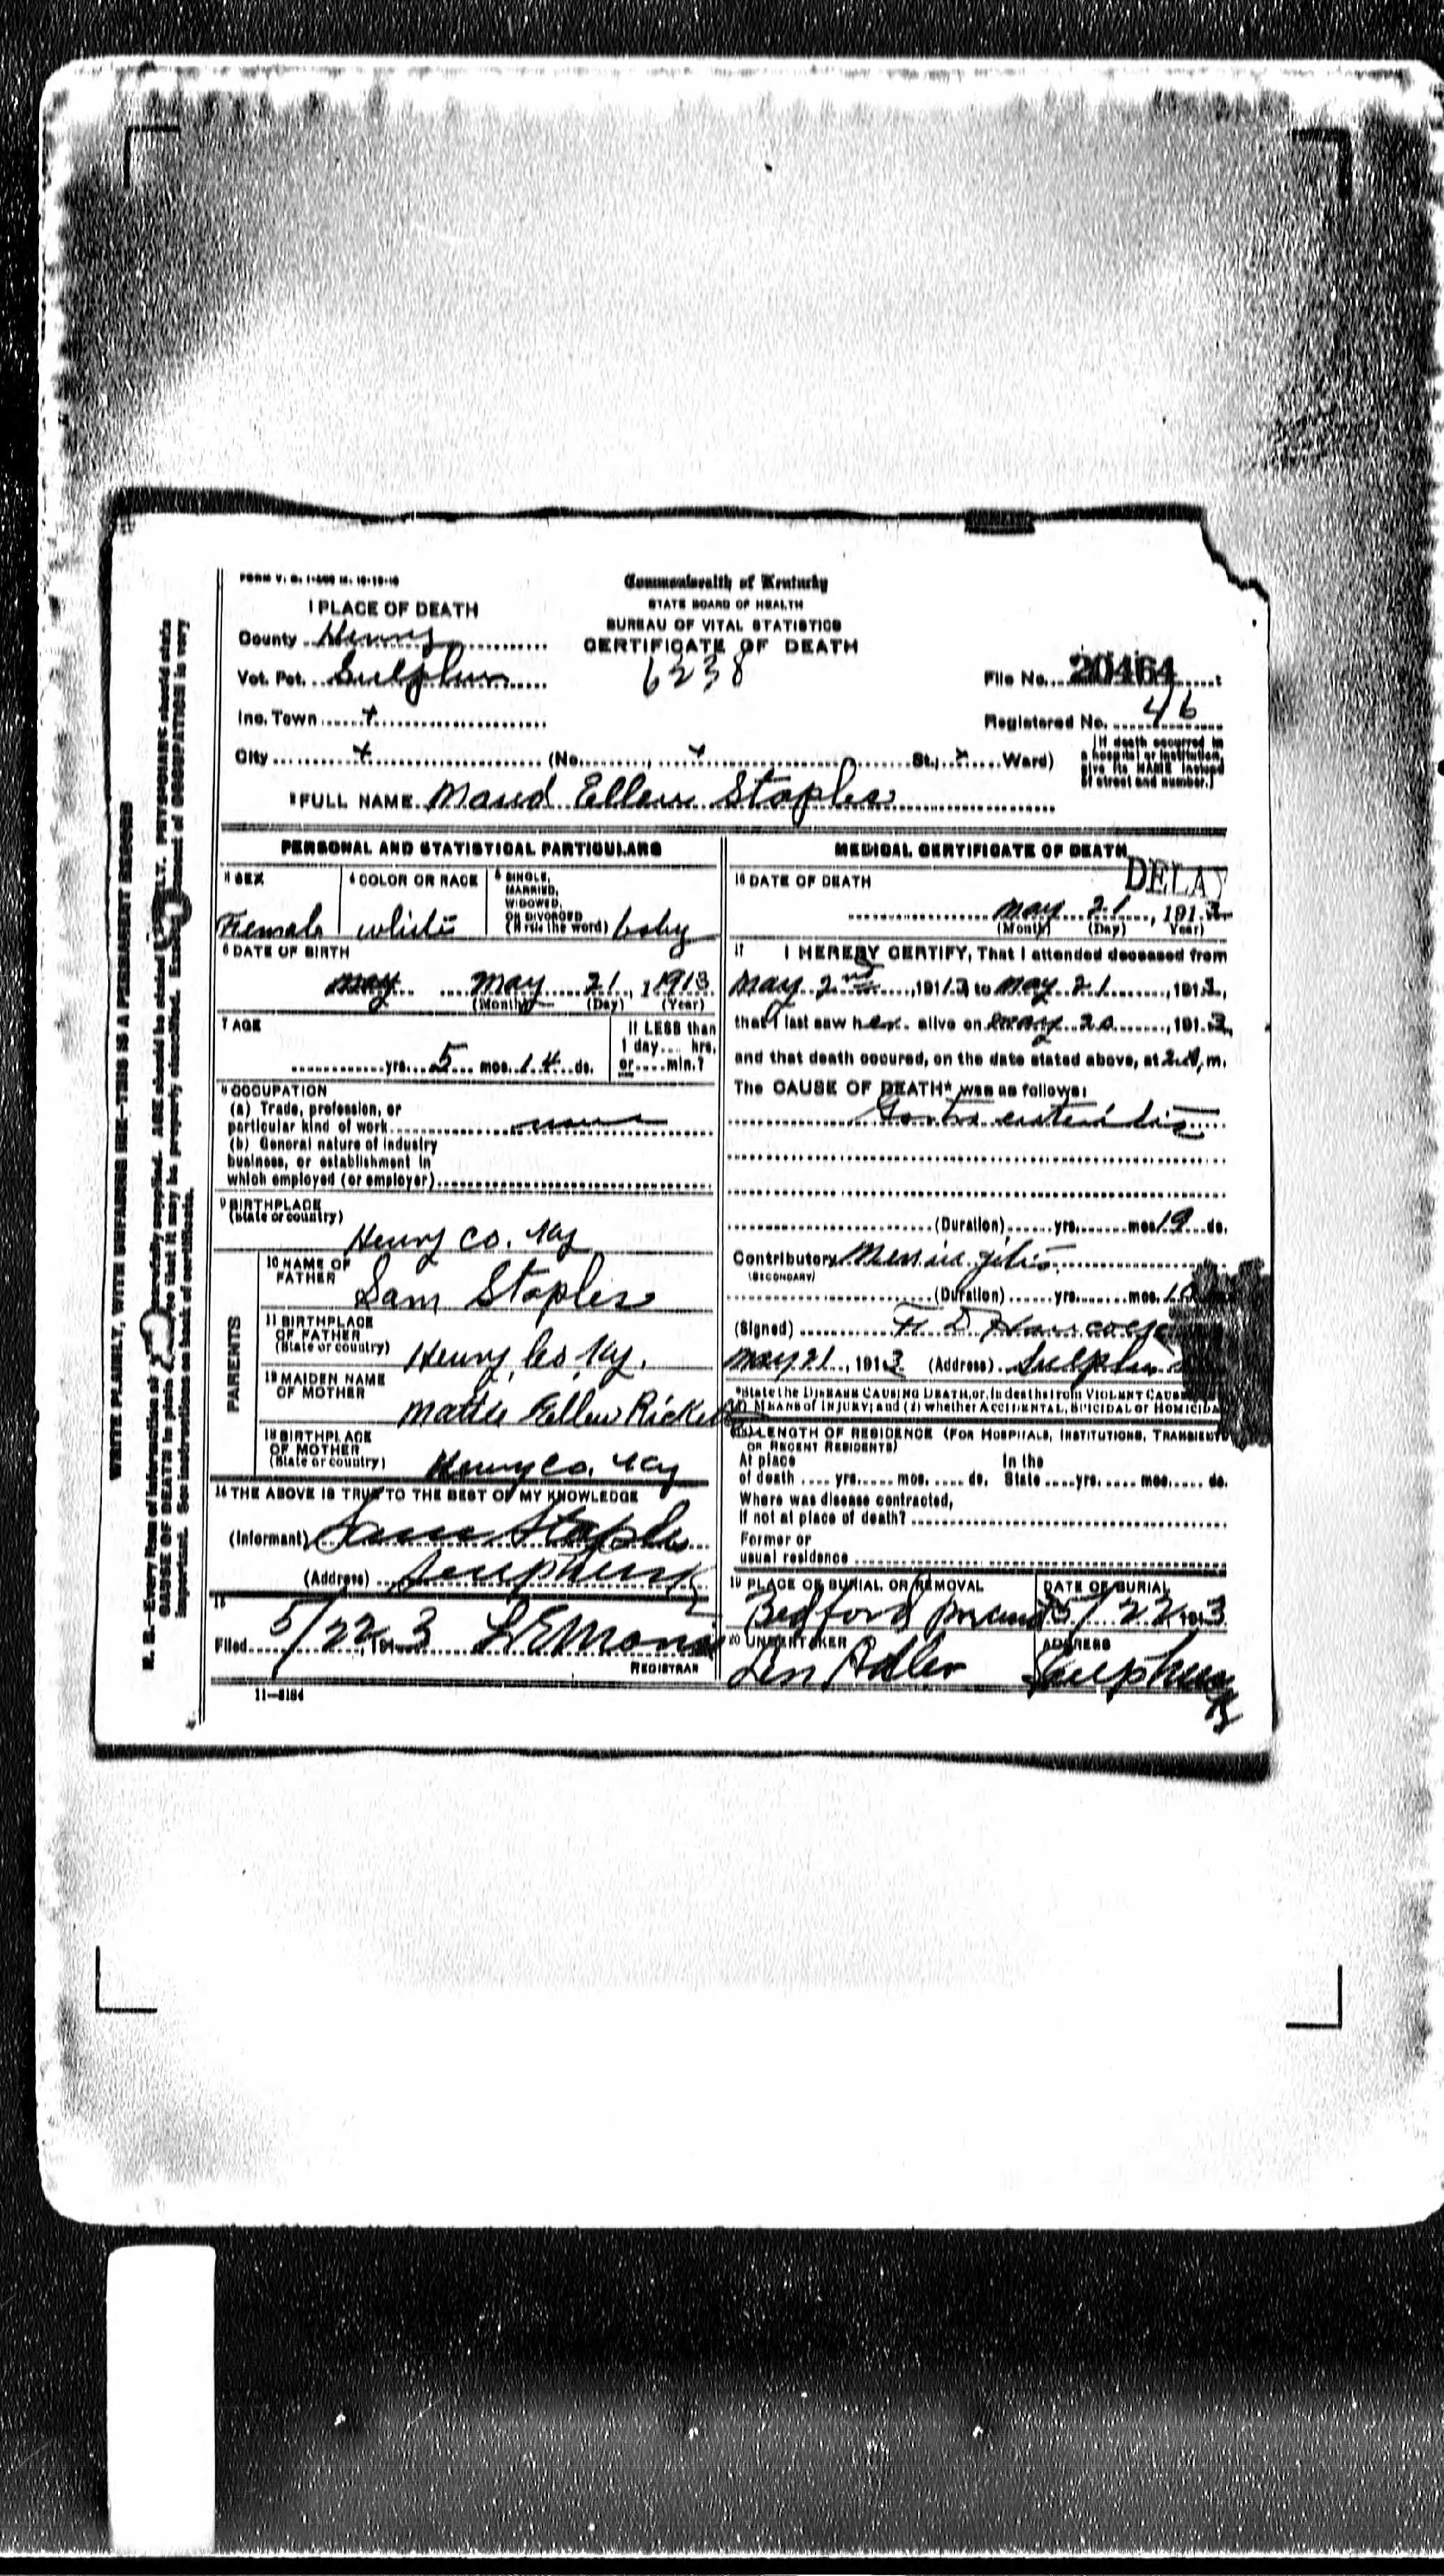 FORM V. S. 1-
Commonwealth of Kentucky
STATE BOARD OF HEALTH
BUREAU OF VITAL STATISTICS
CERTIFICATE OF DEATH
6238
1 PLACE OF DEATH
County Henry
Vot. Pct. Sulphur
Inc. Town x
File No. 20464
Registered No. 46
City x (No. x St.; x Ward)
[If death occurred in
a hospital or institution,
give its NAME instead
of street and number.]
2 FULL NAME Maud Ellen Staples
PERSONAL AND STATISTICAL PARTICULARS
3 SEX
Female
4 COLOR OR RACE
white
5 SINGLE,
MARRIED,
WIDOWED,
OR DIVORCED
(Write the word) baby
6 DATE OF BIRTH
may May 21, 1913
(Month) (Day) (Year)
7 AGE
yrs. 5 mos. 14 ds.
If LESS than
1 day.... hrs.
or.....min.?
8 OCCUPATION
(a) Trade, profession, or
particular kind of work none
(b) General nature of industry
business, or establishment in
which employed (or employer)
9 BIRTHPLACE
(State or country)
Henry Co. Ky
PARENTS
10 NAME OF
FATHER
Sam Staples
11 BIRTHPLACE
OF FATHER
(State or country) Henry Co Ky.
12 MAIDEN NAME
OF MOTHER
Mattie Ellen Ricketts
13 BIRTHPLACE
OF MOTHER
(State or country) Henry Co. Ky
14 THE ABOVE IS TRUE TO THE BEST OF MY KNOWLEDGE
(Informant) Sam Staples
(Address) Sulphur Ky
15
Filed 5/22, 1913 L E Morris
REGISTRAR
11—5184
MEDICAL CERTIFICATE OF DEATH
DELAY
16 DATE OF DEATH
May 21, 1913
(Month) (Day) (Year)
17 I HEREBY CERTIFY, That I attended deceased from
May 2nd, 1913, to May 21, 1913,
that I last saw her alive on May 20, 1913,
and that death occured, on the date stated above, at m.
The CAUSE OF DEATH* was as follows:
Gastro enteritis
(Duration) yrs. mos. 19 ds.
Contributory Meningitis
(SECONDARY)
(Duration) yrs. mos. 10
(Signed)
May 21, 1913 (Address) Sulphur
*State the DISEASE CAUSING DEATH, or, in deaths from VIOLENT CAUSES
(1) MEANS of INJURY; and (2) whether ACCIDENTAL, SUICIDAL or HOMICIDAL
18 LENGTH OF RESIDENCE (FOR HOSPITALS, INSTITUTIONS, TRANSIENTS
OR RECENT RESIDENTS)
At place In the
of death .... yrs. .... mos. .... ds. State .... yrs. .... mos. .... ds.
Where was disease contracted,
if not at place of death?
Former or
usual residence
19 PLACE OF BURIAL OR REMOVAL
Bedford
DATE OF BURIAL
5/22, 1913
20 UNDERTAKER
Len Adler
ADDRESS
Sulphur Ky
WRITE PLAINLY, WITH UNFADING INK—THIS IS A PERMANENT RECORD
N. B.—Every item of information should be carefully supplied. AGE should be stated EXACTLY. PHYSICIANS should state
CAUSE OF DEATH in plain terms, so that it may be properly classified. Exact statement of OCCUPATION is very
important. See instructions on back of certificate.